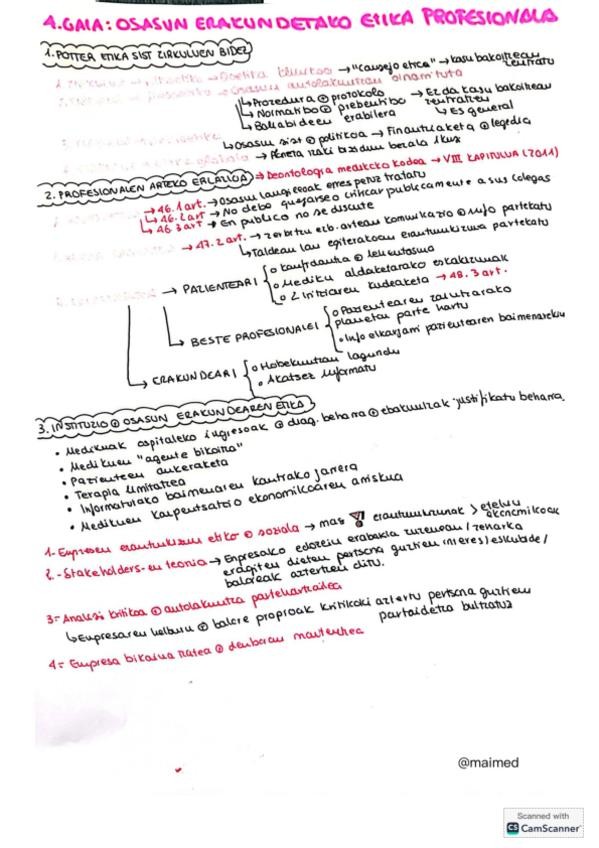 4.GAIA: OSASUN ERAKUNDETAKO ETIKA PROFESIONALA
1. POTTER ETIKA SIST ZIRKULUEN BIDEZ
→ "Consejo etico" → kasu bakoitzean zentratu
↳ Prozedura @ protokolo
↳ Normatibo @ prebentibo → Ez da kasu bakoitzean zentratzen
↳ Baliabideen erabilera ↳ Es general
↳ Osasun sist @ politikoa → Finantziaketa @ legedia
→ Planeta izaki bizidun bezala ikusi
2. PROFESIONALEN ARTEKO ERLAZIOA → Deontologia medikoko kodea → VIII KAPITULUA (2011)
→ 46.1 art. → Osasun langileoak errespetuz tratatu
↳ 46.2 art → No debo quejarse o criticar publicamente a sus colegas
↳ 46.3 art → En publico no se discute
→ 47.2 art. → zerbitzu ezb. artean komunikazio @ info partekatu
↳ Taldean lan egiterakoan erantzukizuna partekatu
→ PAZIENTEARI
o konfidantza @ leuntasuna
o Mediku aldaketarako eskakizunak
o 2. iritziaren kudeaketa → 48.3 art.
↳ BESTE PROFESIONALEI
o Pazientearen zaintzarako planetan parte hartu
• Info elkarjarri pazientearen baimenarekin
↳ ERAKUNDEARI
o Hobekuntzan lagundu
• Akatsez informatu
3. INSTITUZIO @ OSASUN ERAKUNDEAREN ETIKA
• Medikuak ospitaleko ingresoak @ diag. beharra @ ebakuntzak justifikatu beharra
• Medikuen "agente bikoitza"
• Pazienteen aukeraketa
• Terapia limitatzea
• Informatutako baimenaren kontrako jarrera
• Medikuen konpentsatzio ekonomikoaren arriskua
1- Enpresen erantzukizun etiko @ soziala → mas erantzukizunak > etekin ekonomikoak
2.- Stakeholders-en teoria → Enpresako edozein erabakia zuzenean/zeharka
eragiten dieten pertsona guztien interes/eskubide/
baloreak aztertzen ditu.
3= Analisi kritikoa @ autolakuntza partehartzailea
↳ Enpresaren helburu @ balore propioak kritikoki aztertu pertsona guztien
partaidetza bultzatuz
4= Enpresa bikaina izatea @ denboran mantentzea
@maimed
Scanned with
CS CamScanner